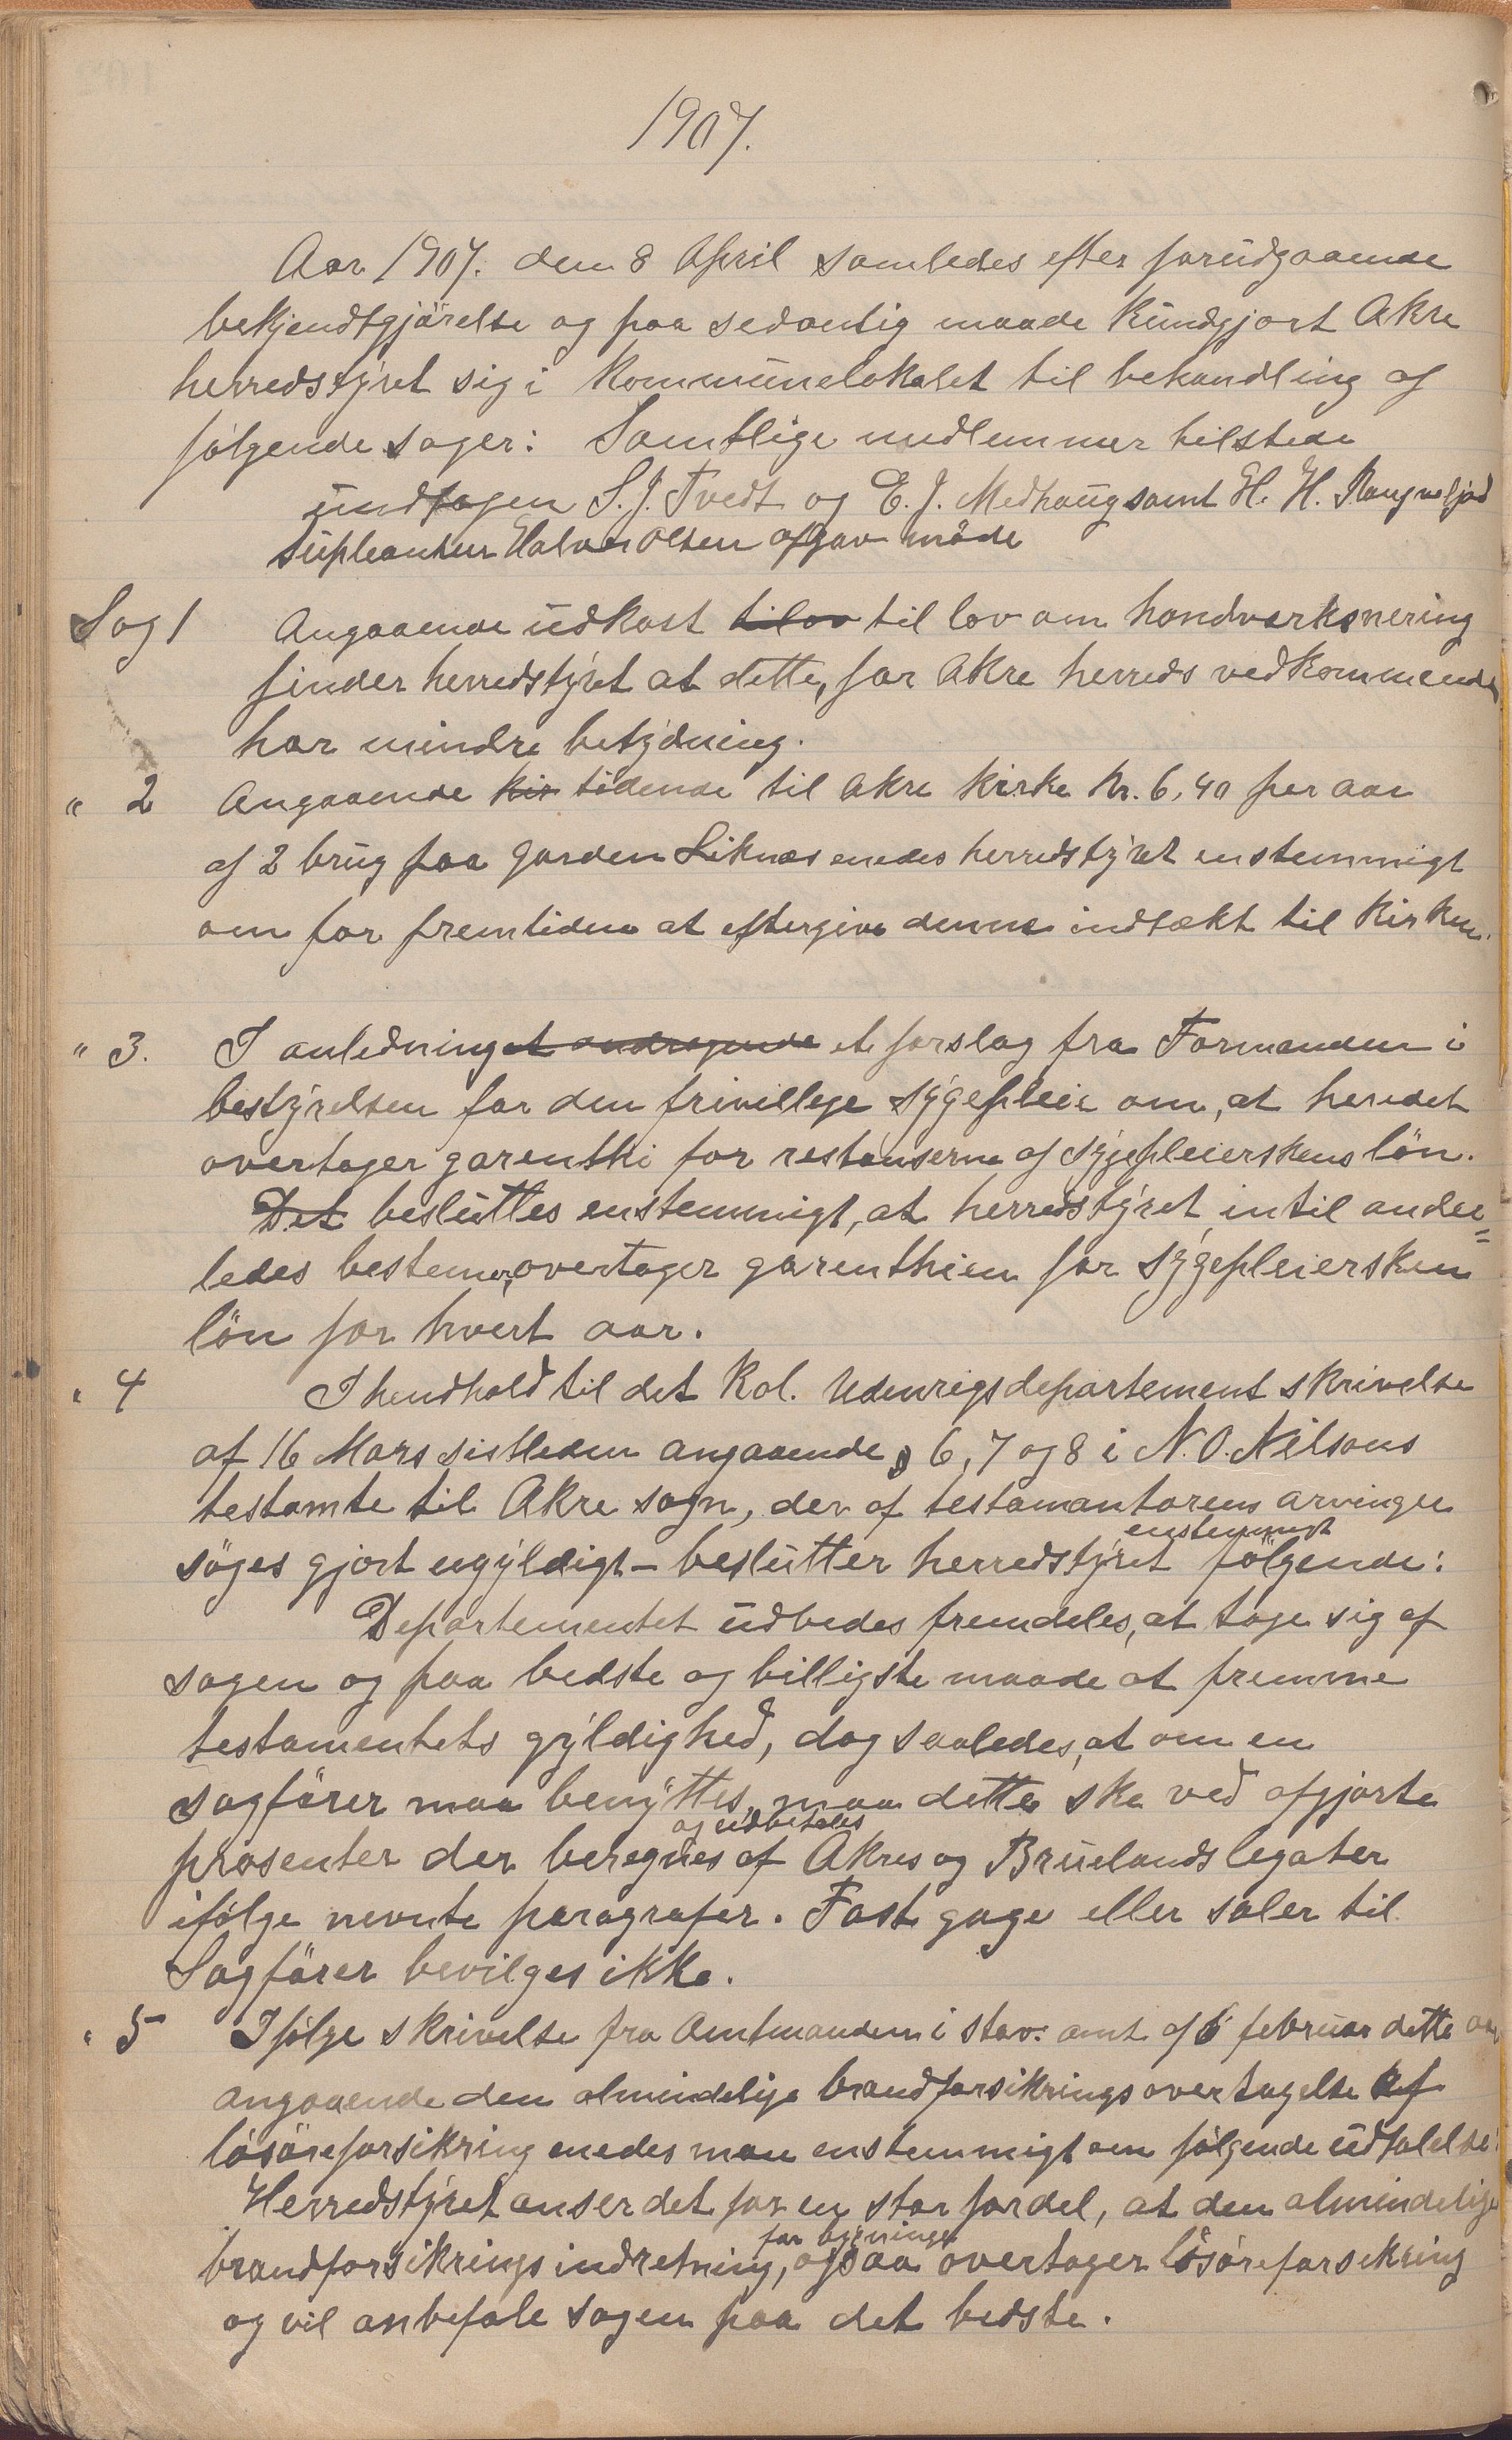 1907.
Aar 1907. den 8 April samledes efter forudgaaende
bekjendtgjörelse og paa sedvanlig maade kundgjort Akre
herredstyret sig i Kommunelokalet til behandling af
følgende sager: Samtlige medlemmer tilstede
undtagen S. J. Tvedt og E. J. Medhaug samt H. H.
supleanten Halvor Olsen afgav möde
Sag 1 Angaaende udkast tilov til lov om handverksnering
finder herredstyret at dette, for Akre herreds vedkommende
har mindre betydning.
" 2 Angaaende kir tidende til Akre kirke kr. 6,40 per aar
af 2 brug paa garden Liknes enedes herredstyret enstemmigt
om for fremtiden at eftergive denne indtækt til kirken.
" 3. I anledning et andragende et forslag fra Formanden i
bestyrelsen for den frivillige sygepleie om, at heredet
overtager garenthi for restanserne af sygepleierskens lön.
Det besluttes enstemmigt, at herredstyret intil ander=
ledes bestemer, overtager garenthien for sygepleiersken
lön for hvert aar.
" 4 I hendhold til det Kol. Udenrigsdepartement skrivelse
af 16 Mars sistleden angaaende § 6, 7 og 8 i N. O. Nilsons
testamte til Akre sogn, der af testamantorens arvinger
söges gjort ugyldigt - beslutter herredstyret enstemmigt fölgende:
Departementet udbedes fremdeles, at tage sig af
sagen og paa bedste og billigste maade at fremme
testamentets gyldighed, dog saaledes, at om en
sagförer maa benyttes, maa dette ske ved afgjorte
prosenter der beregnes og udbetales af Akres og Bruelands legater
ifölge nevnte paragrafer. Fast gage eller saler til
Sagförer bevilges ikke.
" 5 Ifölge skrivelse fra Amtmanden i Stav. amt af 6 februar dette aar
angaaende den almindelige brandforsikrings overtagelse af
lösöreforsikring enedes man enstemmigt om fölgende udtalelse:
Herredstyret anser det for en stor fordel, at den almindelige
brandforsikrings indretning, for bygninger ogsaa overtager lösöreforsekring
og vil anbefale sagen paa det bedste.